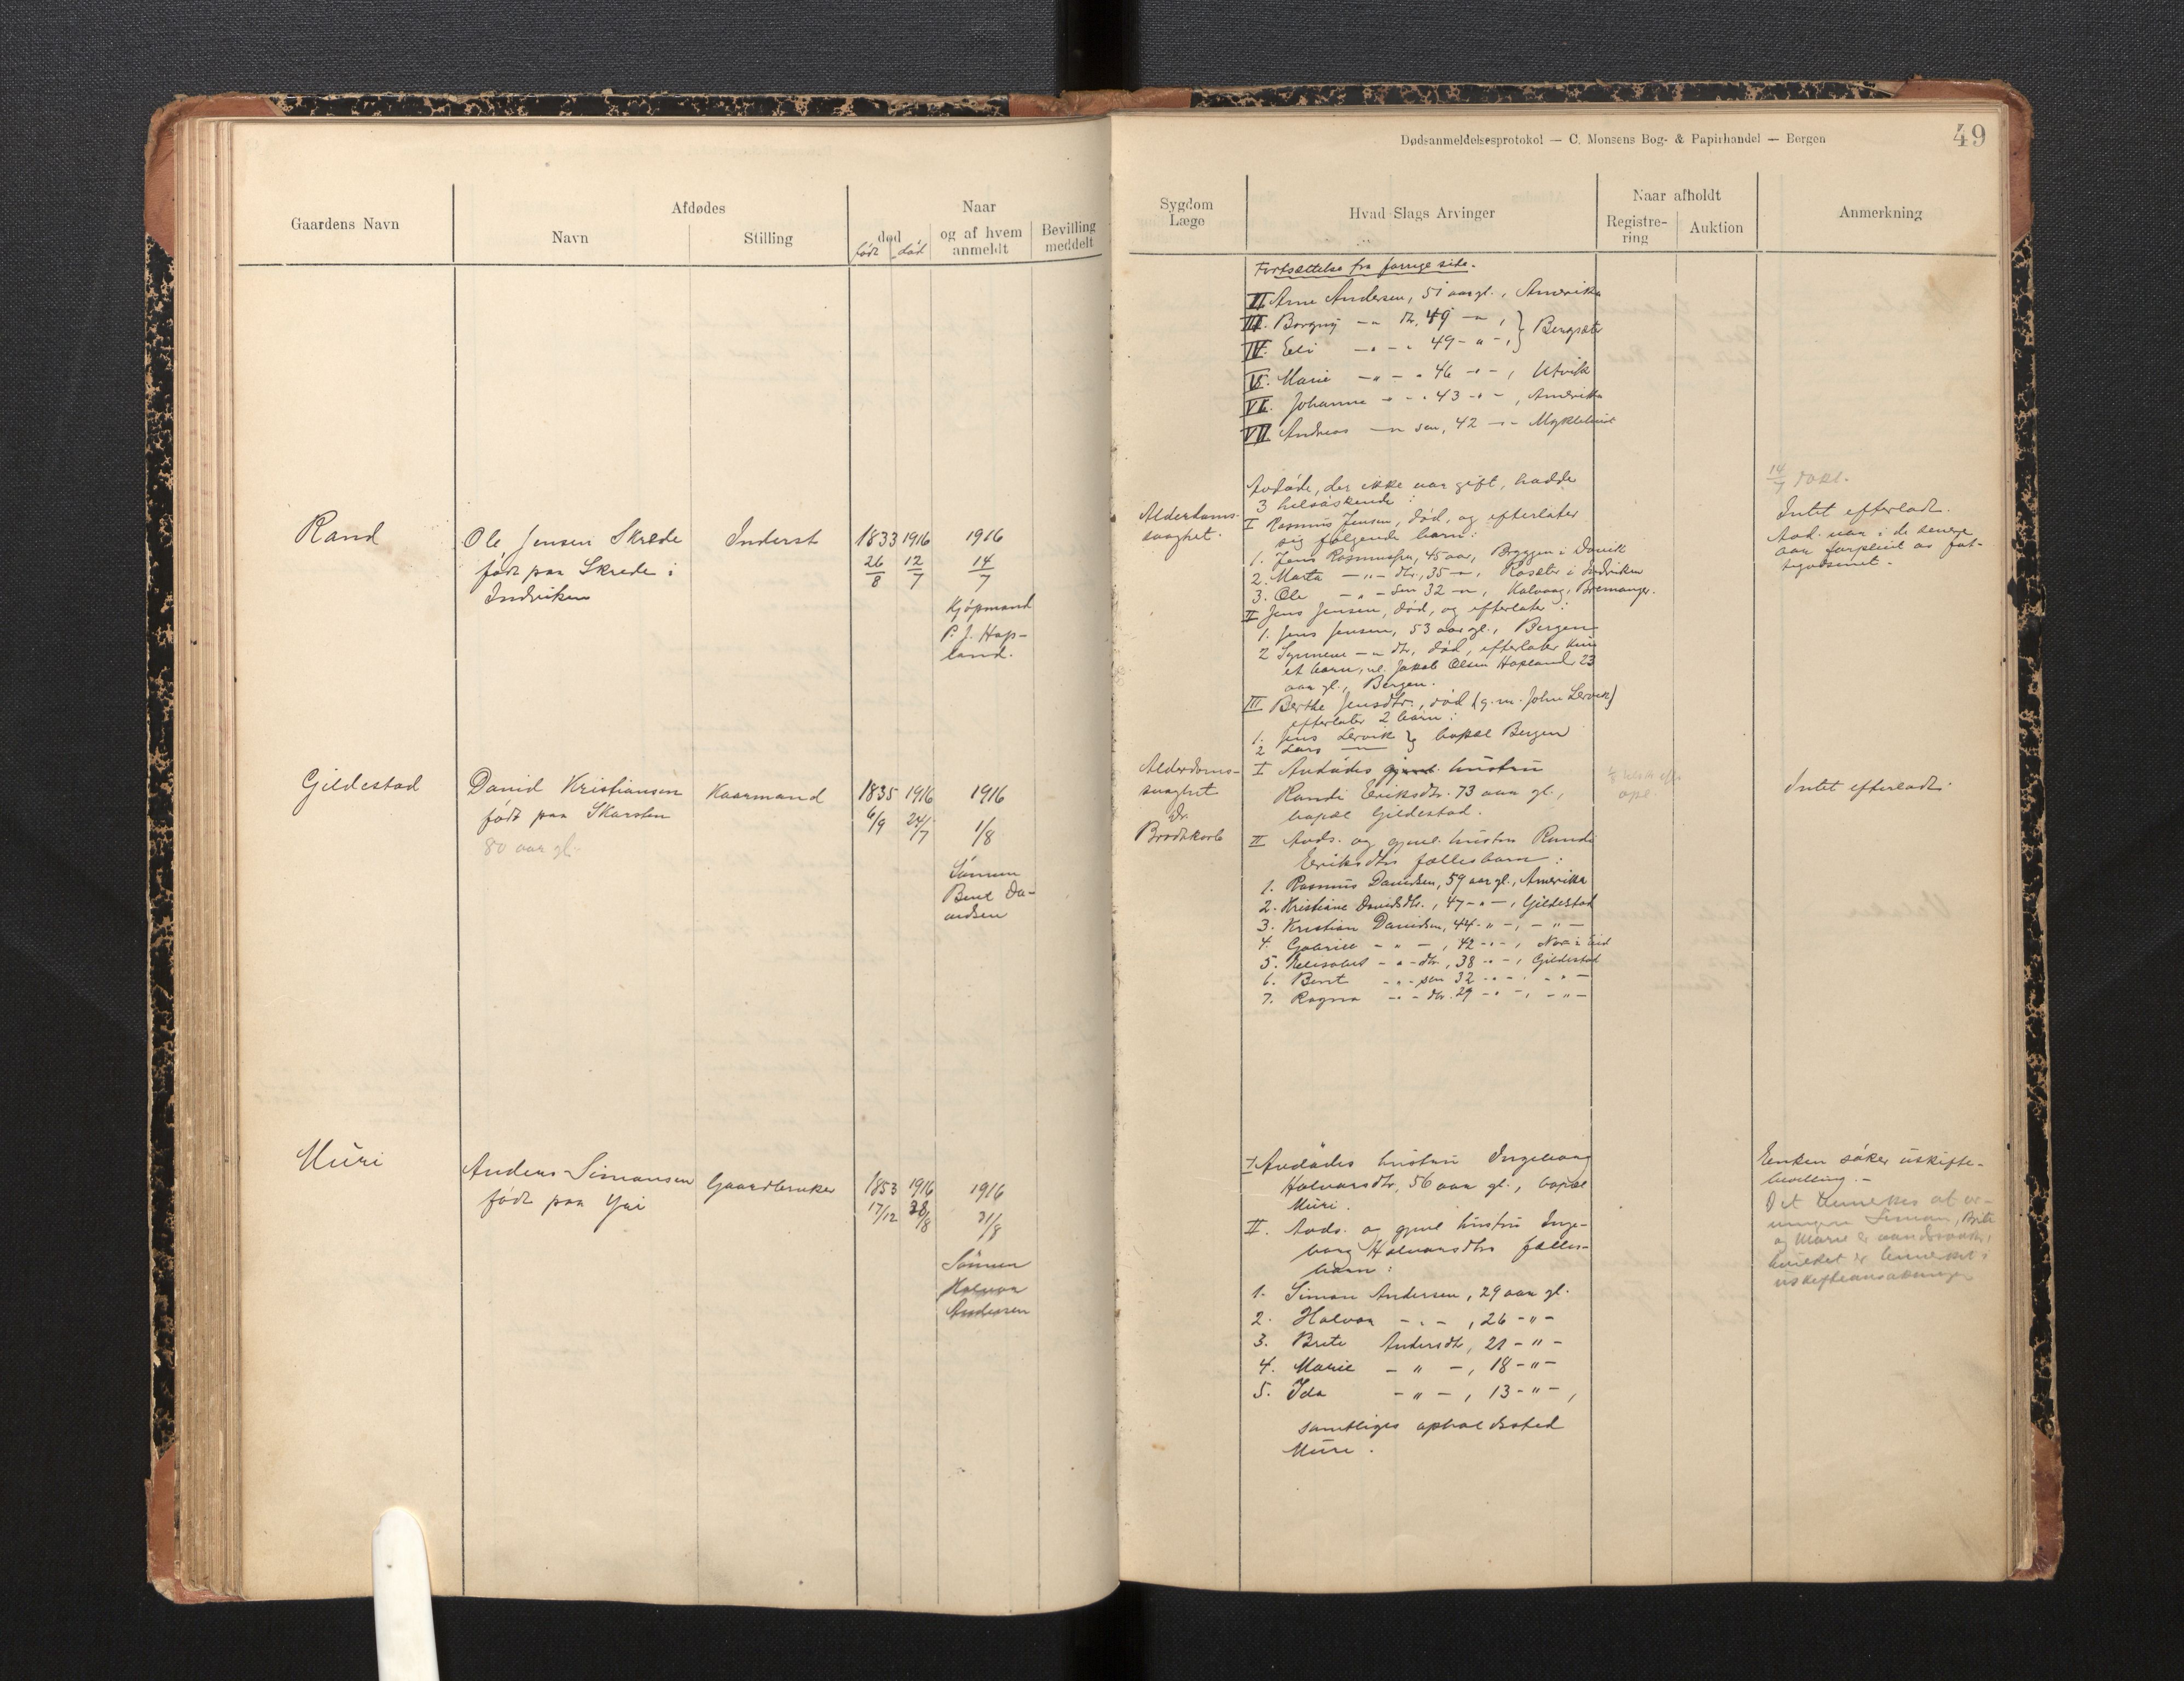 Dødsanmeldelsesprotokol — C. Monsens Bog- & Papirhandel — Bergen
49
Gaardens Navn
Afdødes
Navn
Stilling
Naar
død
født død
og af hvem
anmeldt
Bevilling
meddelt
Sygdom
Læge
Hvad Slags Arvinger
Naar afholdt
Registre-
ring
Auktion
Anmerkning
Fortsættelse fra forrige side.
II. Arne Andersen, 51 aar gl., Amerika
III. Borgny —"— dtr, 49 —"—, } Bergsæter
IV. Eli —"— " 49 —"—,
V. Marie —"— " 46 —"—, Utvik
VI. Johanna —"— " 43 —"—, Amerika
VII Andreas —"— sen, 42 —"— Myklebust
Rand
Ole Jensen Skrede
født paa Skrede i
Indviken
Inderst
1833 1916
26/8 12/7
1916
14/7
Kjøpmand
P. J. Hop-
land.
Alderdoms-
svaghet.
Avdøde, der ikke var gift, hadde
3 helsøskende :
I Rasmus Jensen, død, og efterlater
sig følgende barn :
1. Jens Rasmussen, 45 aar, Bryggen i Davik
2. Marta —"— dtr., 35 —"—, Rosæter i Indviken
3. Ole —"— sen 32 —"—, Kalvaag, Bremanger.
II Jens Jensen, død, og efterlater :
1. Jens Jensen, 53 aar gl., Bergen
2 Synneve —"— dtr, død, efterlater kun
et barn, nl. Jakob Olsen Hopland 23
aar gl., Bergen.
III Berthe Jensdtr., død (g. m. John Lervik)
efterlater 2 barn :
1. Jens Lervik } bopæl Bergen
2 Lars —"—
14/7
Intet efterladt.
Avd. var i de senere
aar forpleiet av fat-
tigvæsenet.
Gildestad
David Kristiansen
født paa Skarsten
80 aar gl.
Kaarmand
1835 1916
6/9 24/7
1916
1/8
Sønnen
Bent Da-
vidsen
Alderdoms-
svaghet
Dr.
Brodtkorb
I Avdødes gjenl. hustru
Randi Eriksdtr. 73 aar gl.,
bopæl Gildestad.
II Avds. og gjenl. hustru Randi
Eriksdtrs fællesbarn :
1. Rasmus Davidsen, 59 aar gl., Amerika
2. Kristiane Davidsdtr., 47 —"—, Gildestad
3. Kristian Davidsen, 44 —"—, —"—
4. Gabriel —"—, 42 —"—, Nor i Eid
5. Helisabet —"— dtr, 38 —"—, Gildestad
6. Bent —"— sen 32 —"—, —"—
7. Ragna —"— dtr. 29 —"—, —"—
Intet efterladt.
Muri
Anders Simonsen
født paa Yri
Gaardbruker
1853 1916
17/12 28/8
1916
31/8
Sønnen
Halvor
Andersen
I Avdødes hustru Ingeborg
Halvorsdtr, 56 aar gl., bopæl
Muri.
II. Avds. o gjenl hustru Inge-
borg Halvorsdtrs fælles-
barn :
1. Simon Andersen, 29 aar gl.
2. Halvor —"—, 26 —"—
3. Brite Andersdtr, 21 —"—
4. Marie —"—, 18 —"—
5. Ida —"—, 13 —"—,
samtliges opholdssted
Muri.
Enken søker uskifte-
bevilling. —
Det bemerkes at ar-
vingene Simon, Brite
og Marie er aandssvake,
hvilket er bemerket i
uskifteansøkningen